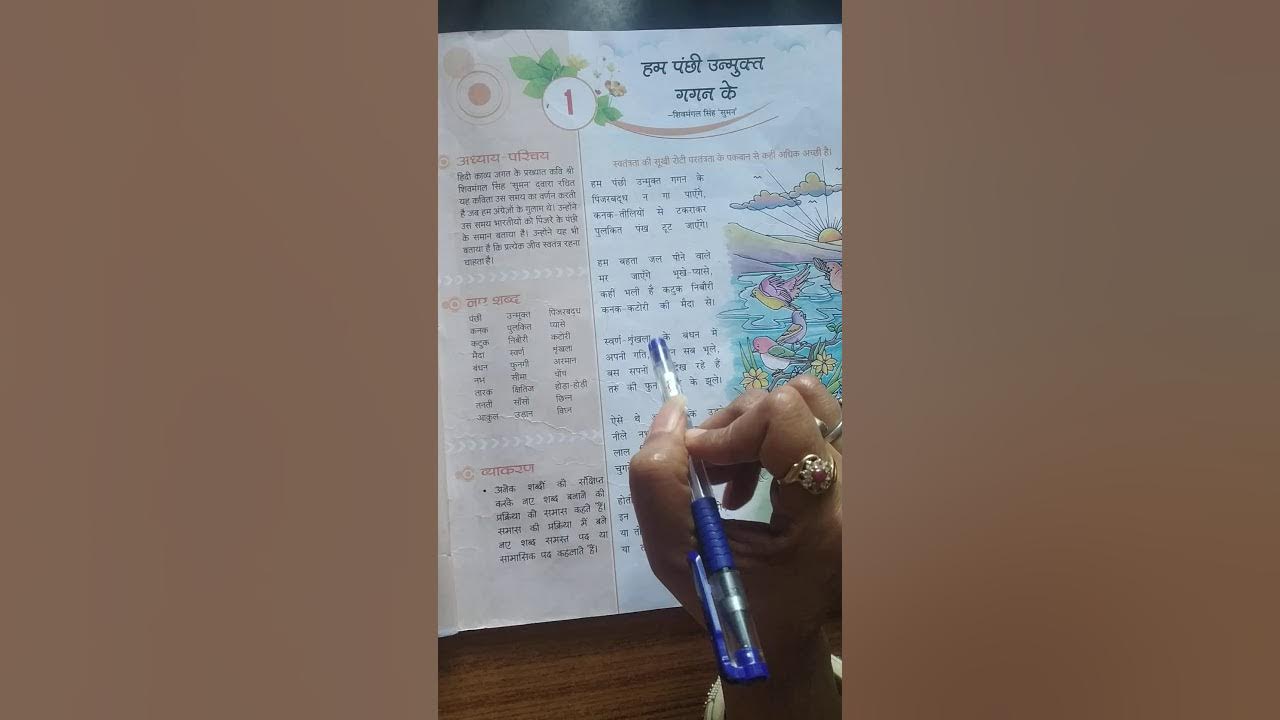 1
हम पंछी उन्मुक्त
गगन के
–शिवमंगल सिंह 'सुमन'
अध्याय-परिचय
हिंदी काव्य जगत के प्रख्यात कवि श्री
शिवमंगल सिंह 'सुमन' द्वारा रचित
यह कविता उस समय का वर्णन करती
है जब हम अंग्रेज़ों के गुलाम थे। उन्होंने
उस समय भारतीयों को पिंजरे के पंछी
के समान बताया है। उन्होंने यह भी
बताया है कि प्रत्येक जीव स्वतंत्र रहना
चाहता है।
नए शब्द
पंछी उन्मुक्त पिंजरबद्ध
कनक पुलकित प्यासे
कटुक निबौरी कटोरी
मैदा स्वर्ण शृंखला
बंधन फुनगी अरमान
नभ सीमा चोंच
तारक क्षितिज होड़ा-होड़ी
तनती साँसों छिन्न
आकुल उड़ान विघ्न
व्याकरण
• अनेक शब्दों को संक्षिप्त
करके नए शब्द बनाने की
प्रक्रिया को समास कहते हैं।
समास की प्रक्रिया में बने
नए शब्द समस्त पद या
सामासिक पद कहलाते हैं।
स्वतंत्रता की सूखी रोटी परतंत्रता के पकवान से कहीं अधिक अच्छी है।
हम पंछी उन्मुक्त गगन के
पिंजरबद्ध न गा पाएँगे,
कनक-तीलियों से टकराकर
पुलकित पंख टूट जाएँगे।
हम बहता जल पीने वाले
मर जाएँगे भूखे-प्यासे,
कहीं भली है कटुक निबौरी
कनक-कटोरी की मैदा से।
स्वर्ण-शृंखला के बंधन में
अपनी गति, सब भूले,
बस सपनों देख रहे हैं
तरु की के झूले।
ऐसे थे
नीले
लाल
इन
या
या